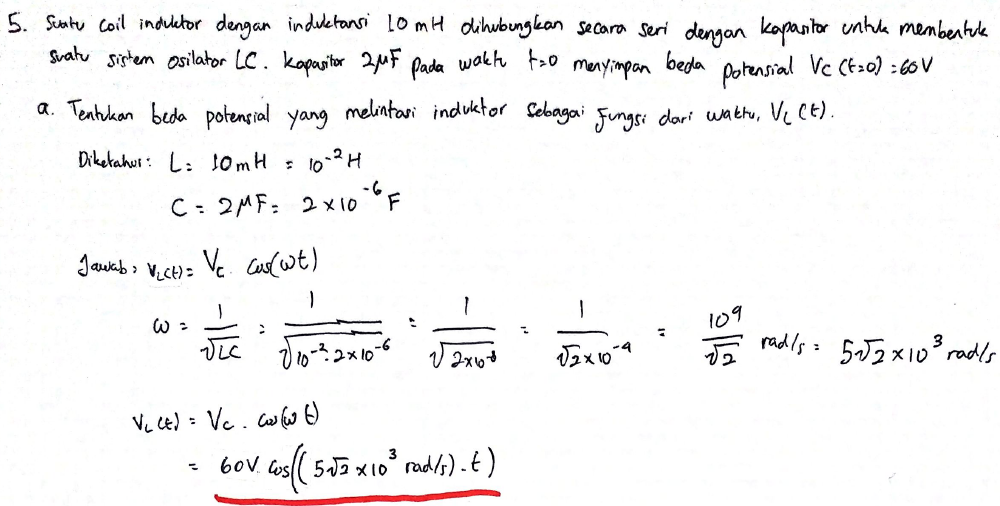 5. Suatu coil induktor dengan induktansi 10 mH dihubungkan secara seri dengan kapasitor untuk membentuk
suatu sistem osilator LC. Kapasitor 2μF pada waktu t=0 menyimpan beda potensial Vc (t=0) = 60 V
a. Tentukan beda potensial yang melintasi induktor sebagai fungsi dari waktu, VL (t).
Diketahui: L = 10 mH = 10⁻² H
C = 2 μF = 2 × 10⁻⁶ F
Jawab: VL(t) = Vc . cos(ωt)
ω = 1/√LC = 1/√(10⁻² · 2×10⁻⁶) = 1/√(2×10⁻⁸) = 1/(√2×10⁻⁴) = 10⁴/√2 rad/s = 5√2 × 10³ rad/s
VL (t) = Vc . cos(ω t)
= 60V. cos((5√2 × 10³ rad/s) . t)